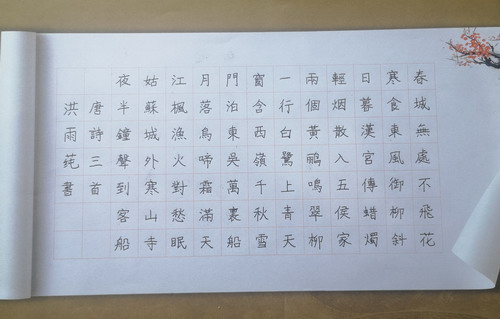 春城無處不飛花
寒食東風御柳斜
日暮漢宮傳蜡燭
輕烟散入五侯家
兩個黃鸝鳴翠柳
一行白鷺上青天
窗含西嶺千秋雪
門泊東吳萬裏船
月落烏啼霜滿天
江楓漁火對愁眠
姑蘇城外寒山寺
夜半鐘聲到客船
唐詩三首
洪雨莼書